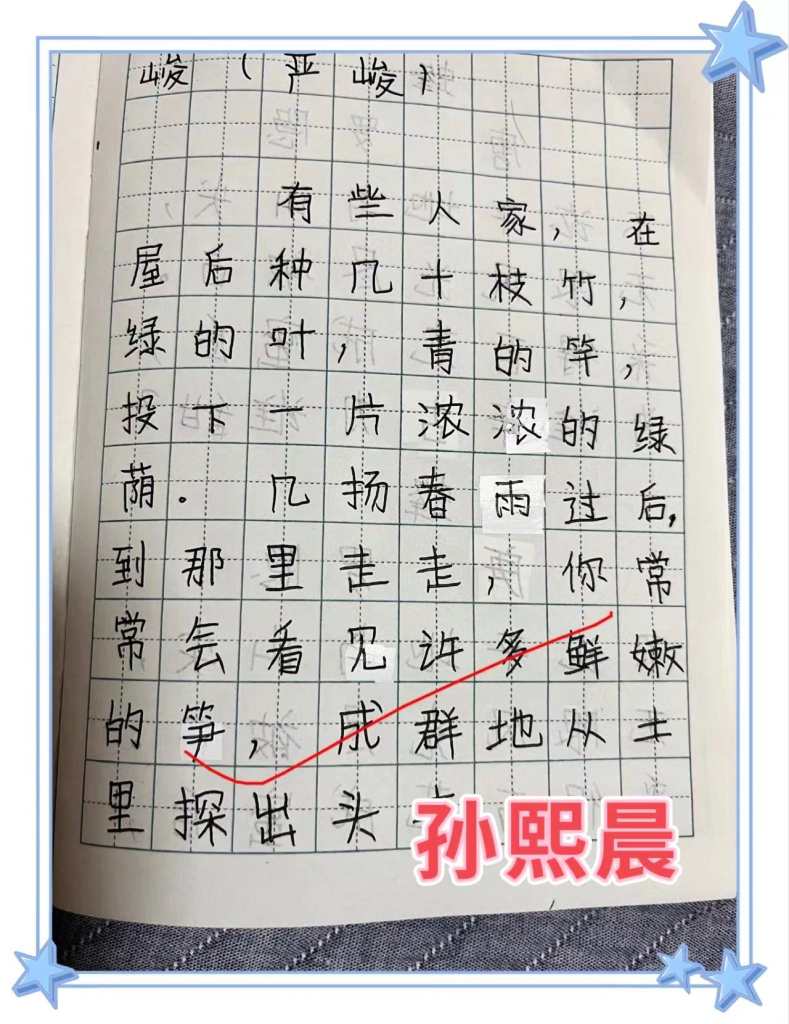 峻(严峻)
有些人家，在
屋后种几十枝竹，
绿的叶，青的竿，
投下一片浓浓的绿
荫.几扬春雨过后，
到那里走走，你常
常会看见许多鲜嫩
的笋，成群地从土
里探出头
孙熙晨